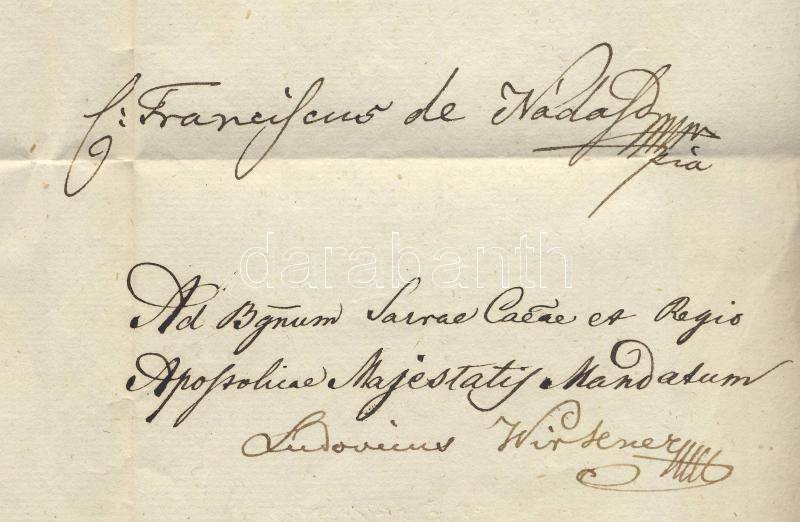 C: Franciscus de Nádasd mpr
pia
darabanth
Ad Bgnum Sacrae Caēae et Regio
Apostolicae Majestatis Mandatum
Ludovicus Wirkner